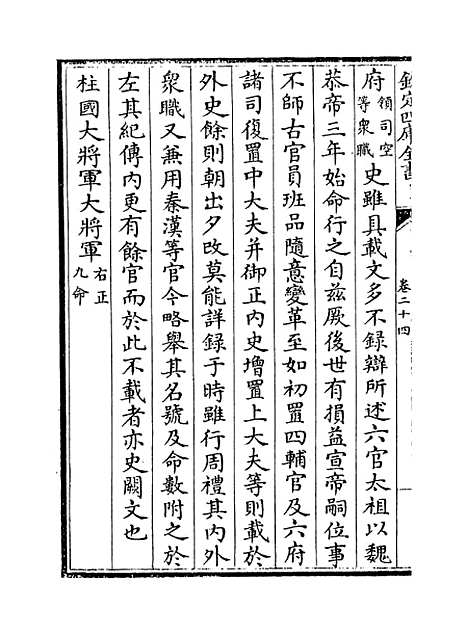 欽定四庫全書
卷二十四
府領司空等衆職史雖具載文多不錄辯所述六官太祖以魏
恭帝三年始命行之自兹厥後世有損益宣帝嗣位事
不師古官員班品隨意變革至如初置四輔官及六府
諸司復置中大夫并御正内史增置上大夫等則載於
外史餘則朝出夕改莫能詳録于時雖行周禮其内外
衆職又兼用秦漢等官今略舉其名號及命數附之於
左其紀傳内更有餘官而於此不載者亦史闕文也
柱國大將軍大將軍右正九命